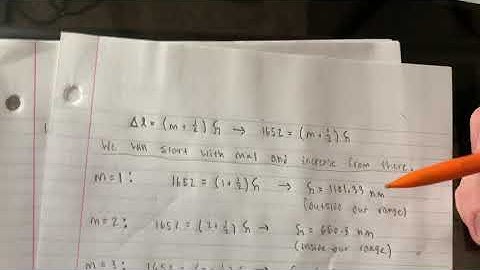 Δl = (m + 1/2) ζ → 1652 = (m + 1/2) ζ
We will start with m=1 and increase from there.
m=1: 1652 = (1 + 1/2) ζ → ζ = 1101.33 nm
(outside our range)
m=2: 1652 = (2 + 1/2) ζ → ζ = 660.8 nm
(inside our range)
m=3: